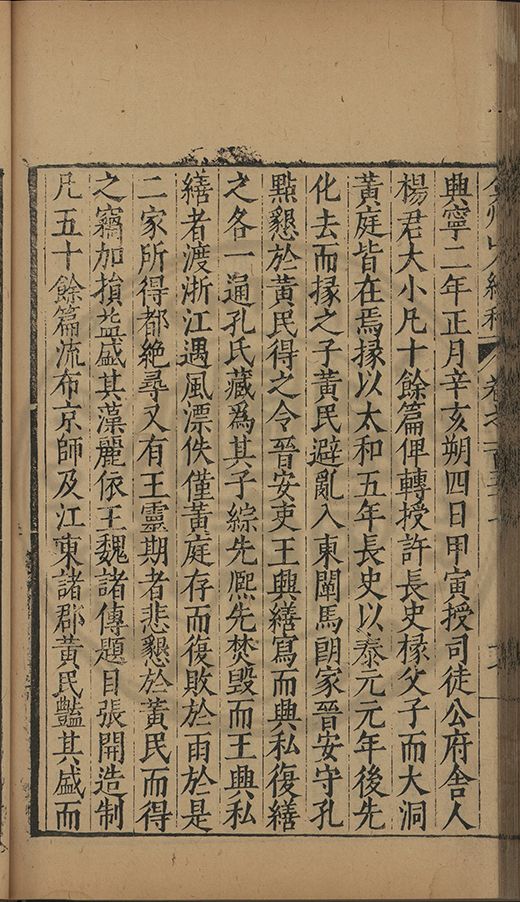 興寧二年正月辛亥朔四日甲寅授司徒公府舎人
楊君大小凡十餘篇俾轉授許長史掾父子而大洞
黃庭皆在焉掾以太和五年長史以泰元元年後先
化去而掾之子黃民避亂入東闡馬朗家晉安守孔
點懇於黃民得之令晉安吏王興繕寫而興私復繕
之各一通孔氏藏爲其子綜先熈先焚毀而王興私
繕者渡浙江遇風漂佚僅黃庭存而復敗於雨於是
二家所得都絶尋又有王靈期者悲懇於黃民而得
之竊加損益盛其藻麗依王魏諸傳題目張開造制
凡五十餘篇流布京師及江東諸郡黃民豔其盛而